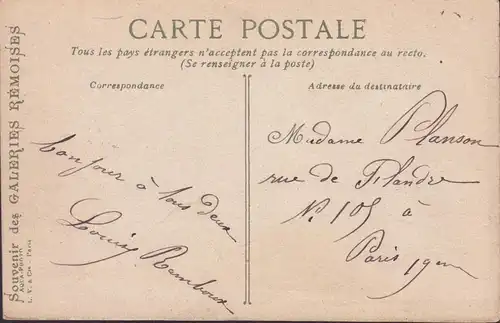 CARTE POSTALE
Tous les pays étrangers n'acceptent pas la correspondance au recto.
(Se renseigner à la poste)
Correspondance
Adresse du destinataire
Souvenir des GALERIES RÉMOISES
AQUA-PHOTO
L. V. & Cie - Paris
bonjour à tous deux
Louis
Madame Planson
rue de Flandre
N. 105 à
Paris 19em